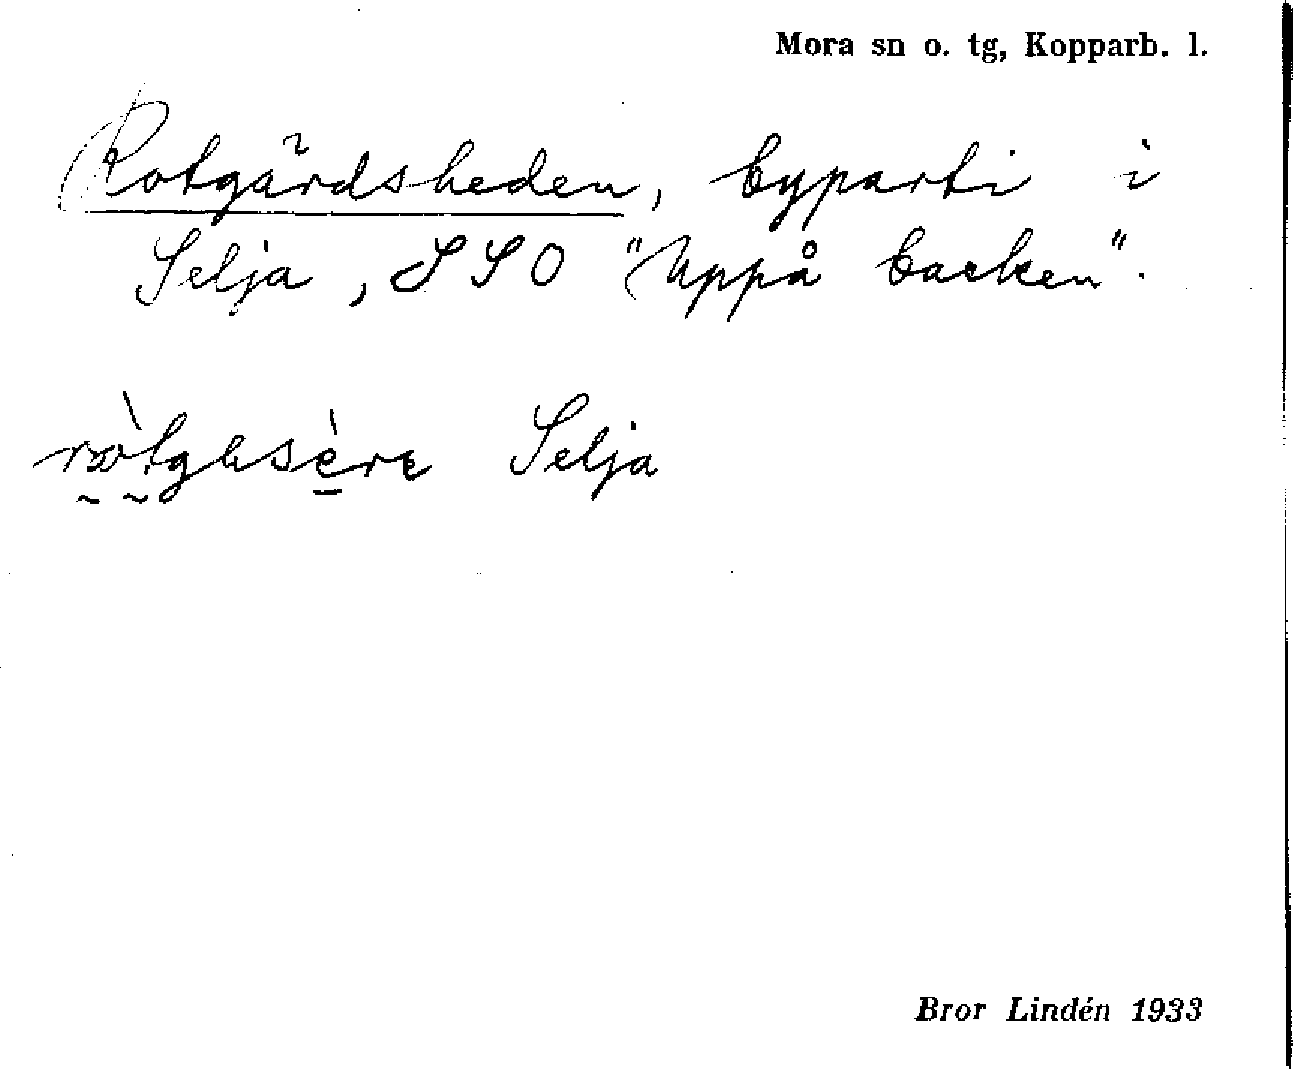 Mora sn o. tg, Kopparb. l.
Rotgärdsheden, byparti i
Selja, SSO "Uppå backen".
Selja
Bror Lindén 1933